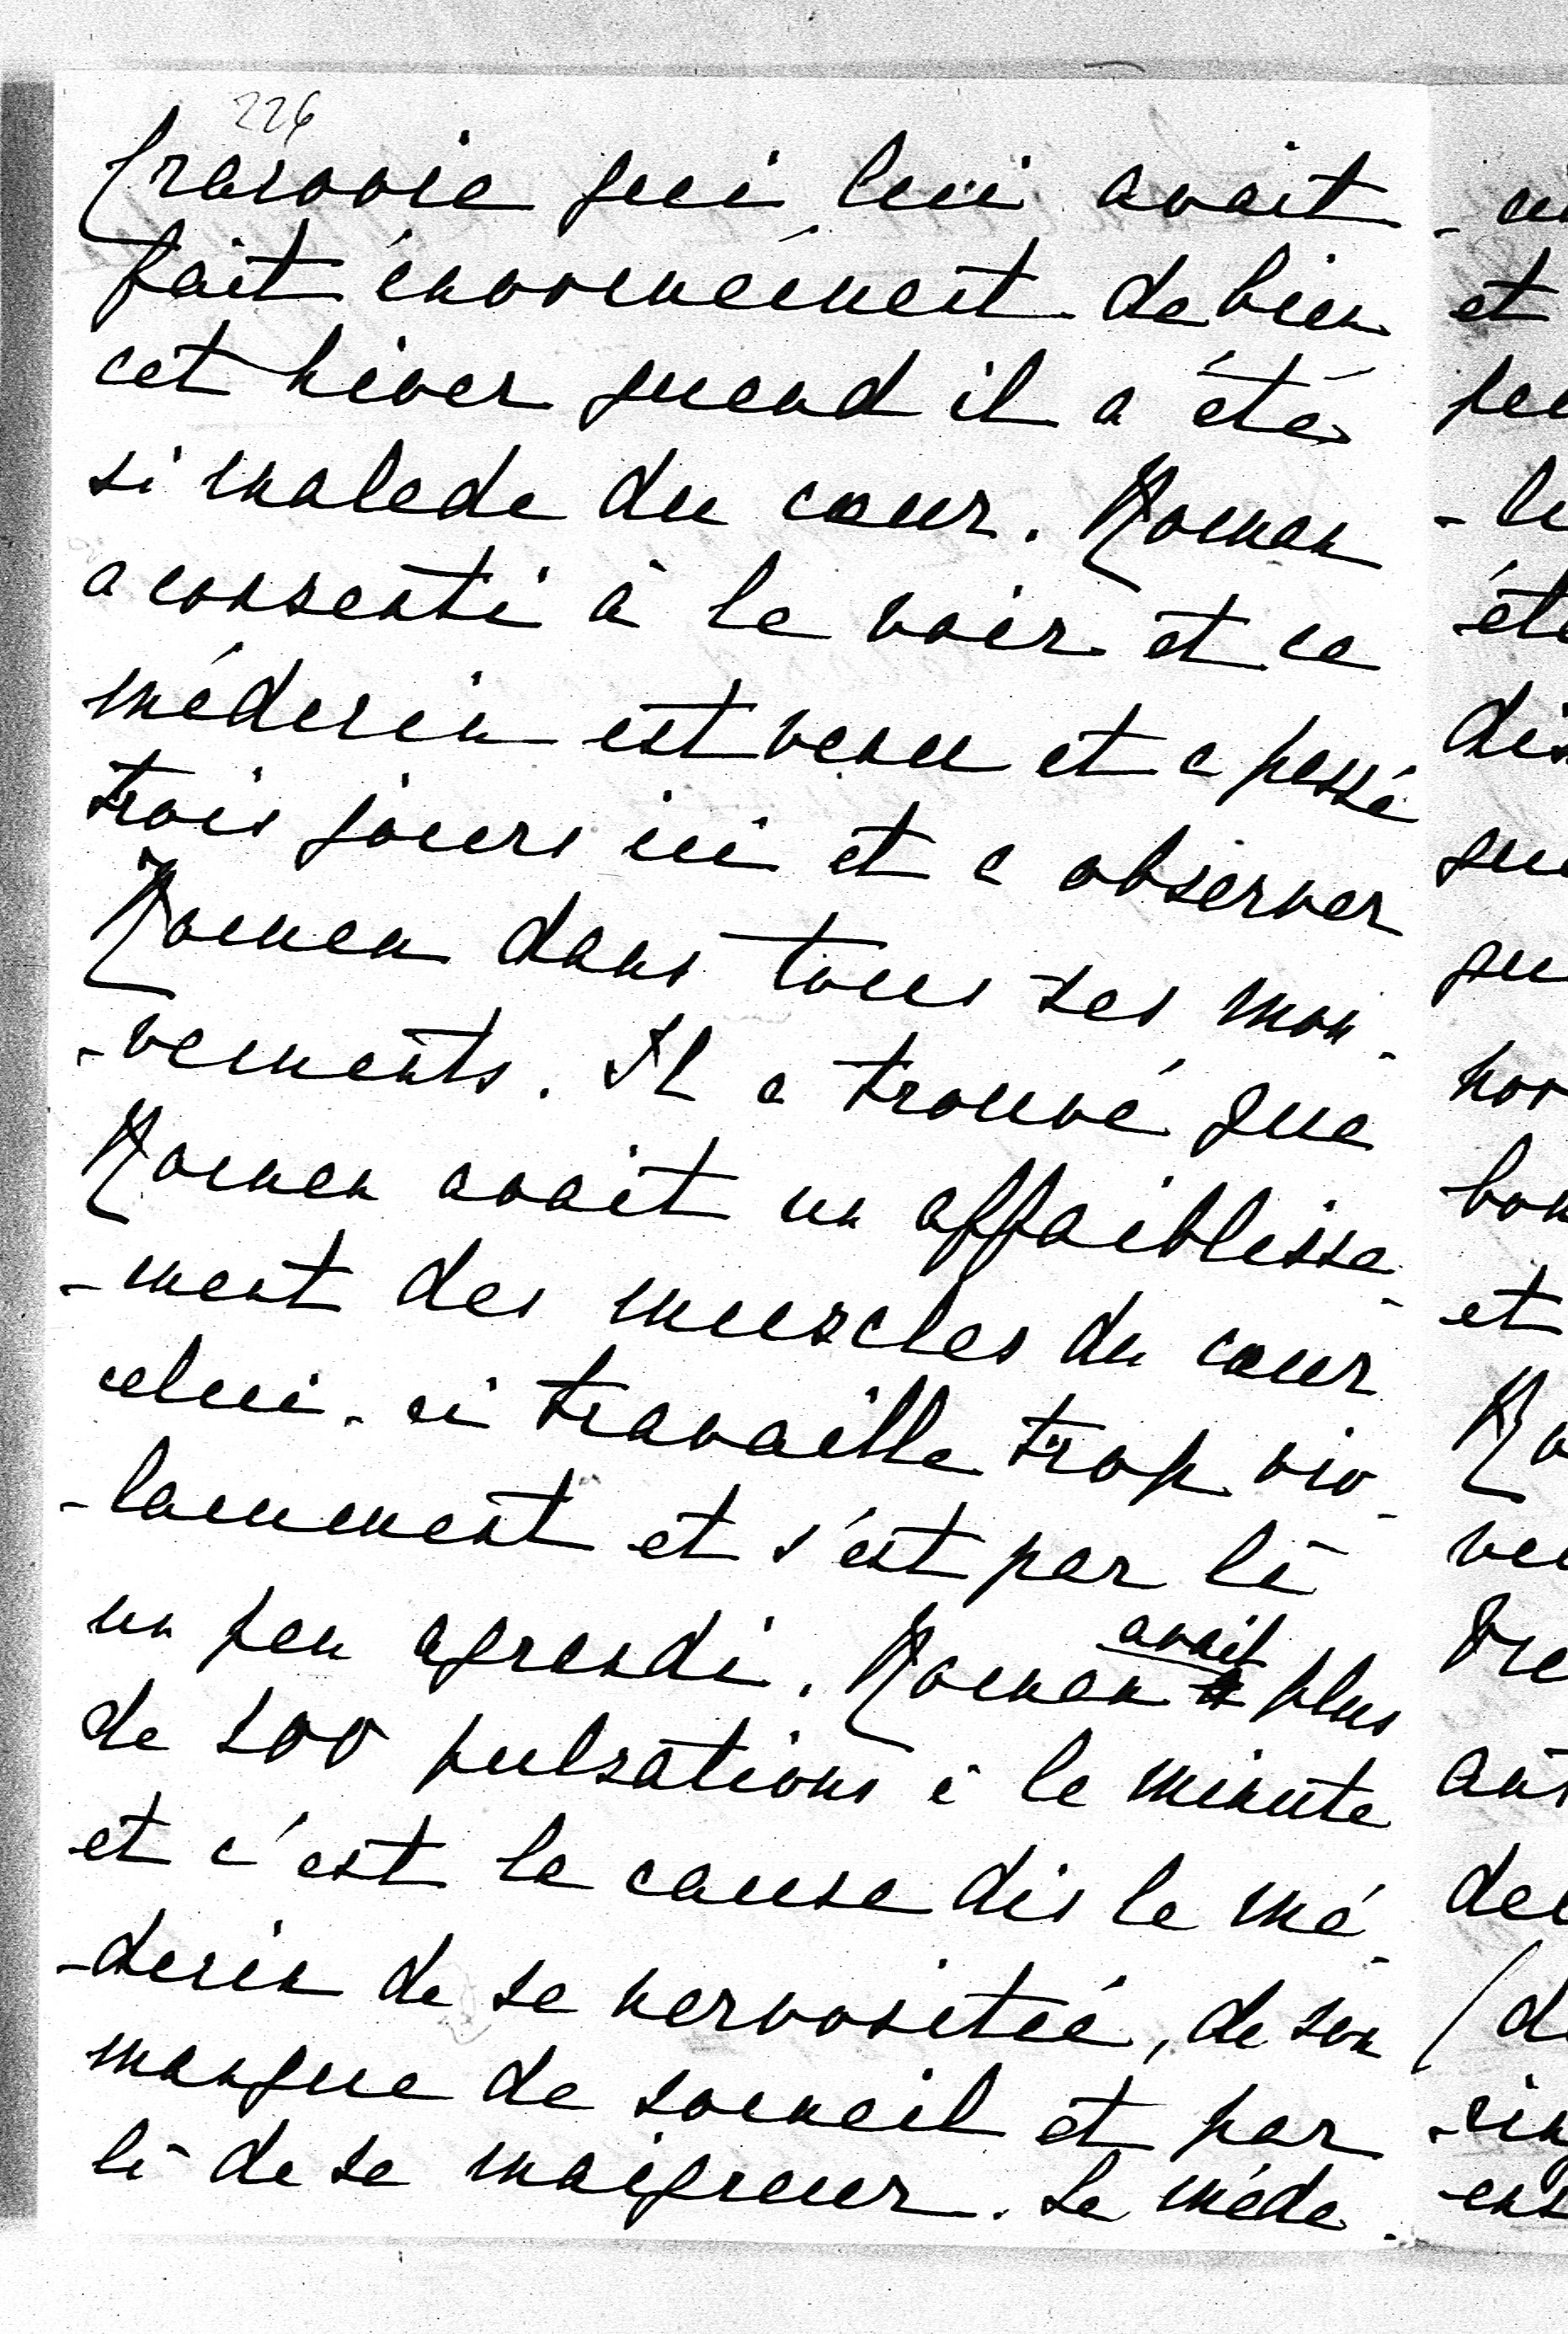 226
Cracovie qui lui avait
fait énormément de bien
cet hiver quand il a été
si malade du cœur. Roman
a consenti à le voir et ce
médecin est venu et a passé
trois jours ici et a observer
Roman dans tous ses mou-
-vements. Il a trouvé que
Roman avait un affaiblisse-
-ment des muscles du cœur
celui-ci travaille trop vio-
-lamment et s'est par là
un peu agrandi. Roman avait plus
de 100 pulsations à la minute
et c'est la cause dis le mé-
-decin de sa nervositée, de son
manque de someil et par
là de sa maigreur. Le méde-